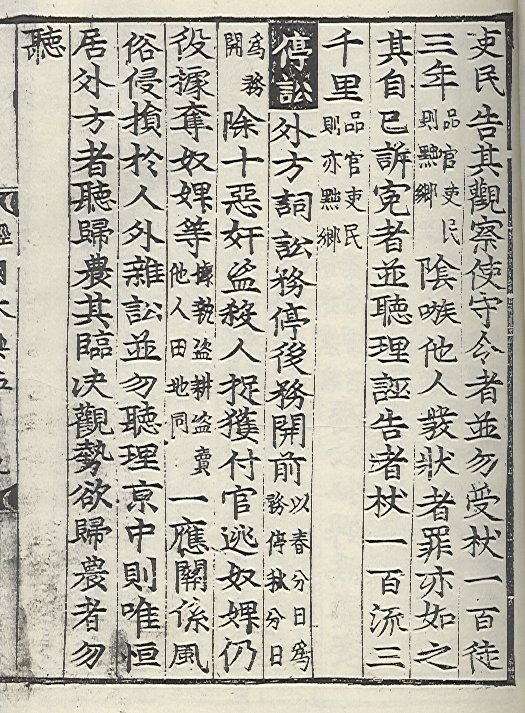 吏民告其觀察使守令者並勿受杖一百徒
三年品官吏民則黜鄉陰嗾他人發狀者罪亦如之
其自己訴寃者並聽理誣告者杖一百流三
千里品官吏民則亦黜鄉
停訟外方詞訟務停後務開前以春分日爲務停秋分日
爲務開除十惡奸盜殺人捉獲付官逃奴婢仍
役據奪奴婢等據執盜耕盜賣他人田地同一應關係風
俗侵損於人外雜訟並勿聽理亰中則唯恒
居外方者聽歸農其臨决觀勢欲歸農者勿
聽